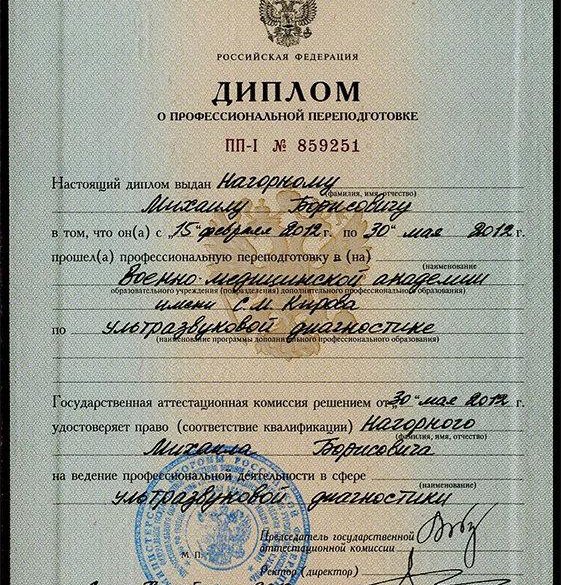 РОССИЙСКАЯ ФЕДЕРАЦИЯ
ДИПЛОМ
О ПРОФЕССИОНАЛЬНОЙ ПЕРЕПОДГОТОВКЕ
ПП-I № 859251
Настоящий диплом выдан Нагорному
(фамилия, имя, отчество)
Михаилу Борисовичу
в том, что он(а) с „15“ февраля 2012 г. по „30“ мая 2012 г.
прошел(а) профессиональную переподготовку в (на)
(наименование
Военно-медицинской академии
образовательного учреждения (подразделения) дополнительного профессионального образования)
имени С.М. Кирова
по ультразвуковой диагностике
(наименование программы дополнительного профессионального образования)
Государственная аттестационная комиссия решением от „30“ мая 2012 г.
удостоверяет право (соответствие квалификации) Нагорного
(фамилия, имя, отчество)
Михаила Борисовича
на ведение профессиональной деятельности в сфере
(наименование)
ультразвуковой диагностики
Председатель государственной
аттестационной комиссии
М. П.
Ректор (директор)